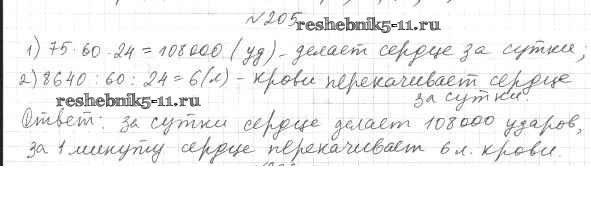 №205
reshebnik5-11.ru
1) 75·60·24=108000 (уд) - делает сердце за сутки;
2) 8640 : 60 : 24 = 6(л) - крови перекачивает сердце
за сутки.
reshebnik5-11.ru
Ответ: за сутки сердце делает 108000 ударов,
за 1 минуту сердце перекачивает 6 л. крови.